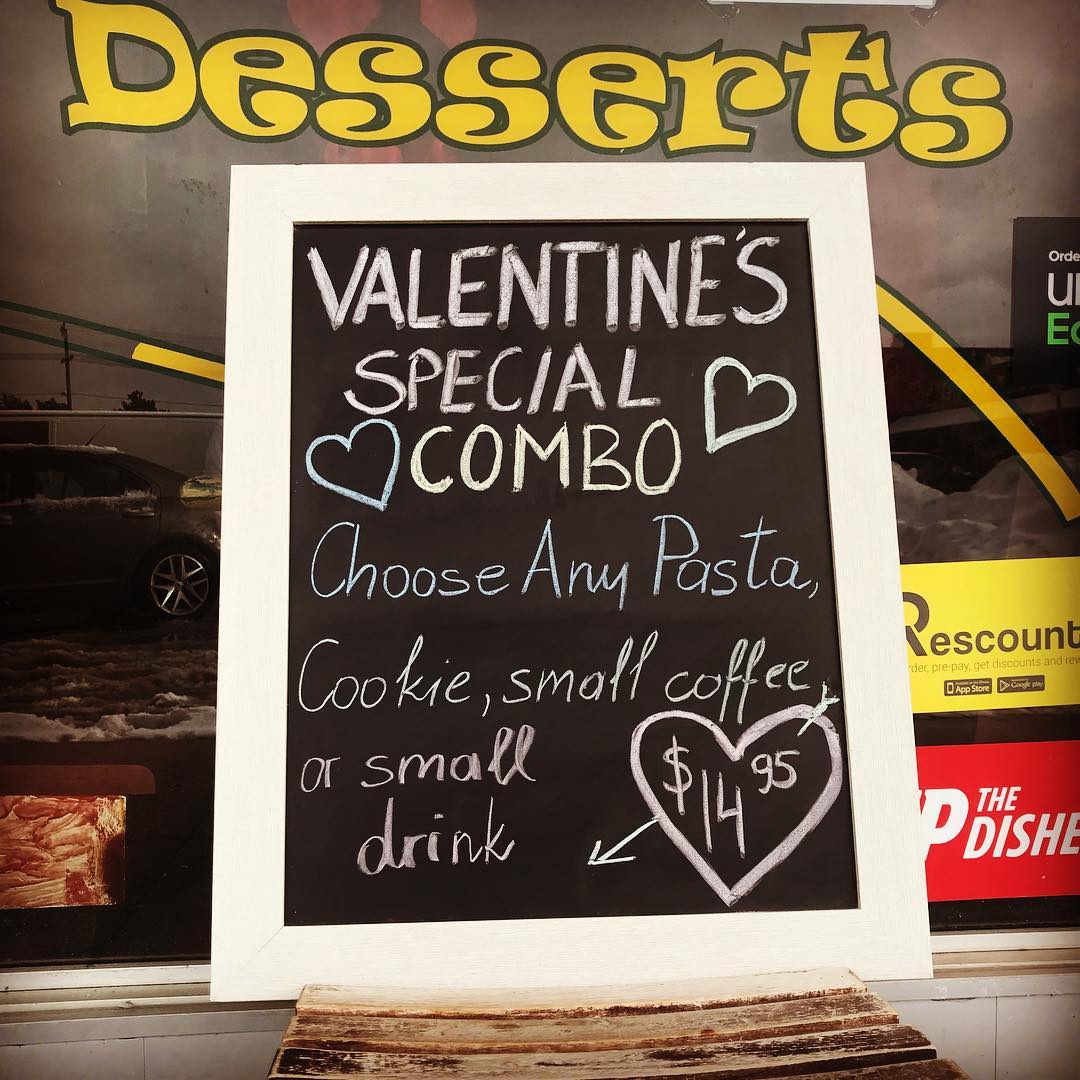 Desserts
VALENTINE'S
SPECIAL
COMBO
Choose Any Pasta,
Cookie, small coffee
or small
drink
$14 95
Rescount
pre-pay, get discounts and
App Store
Google play
THE
DISHE